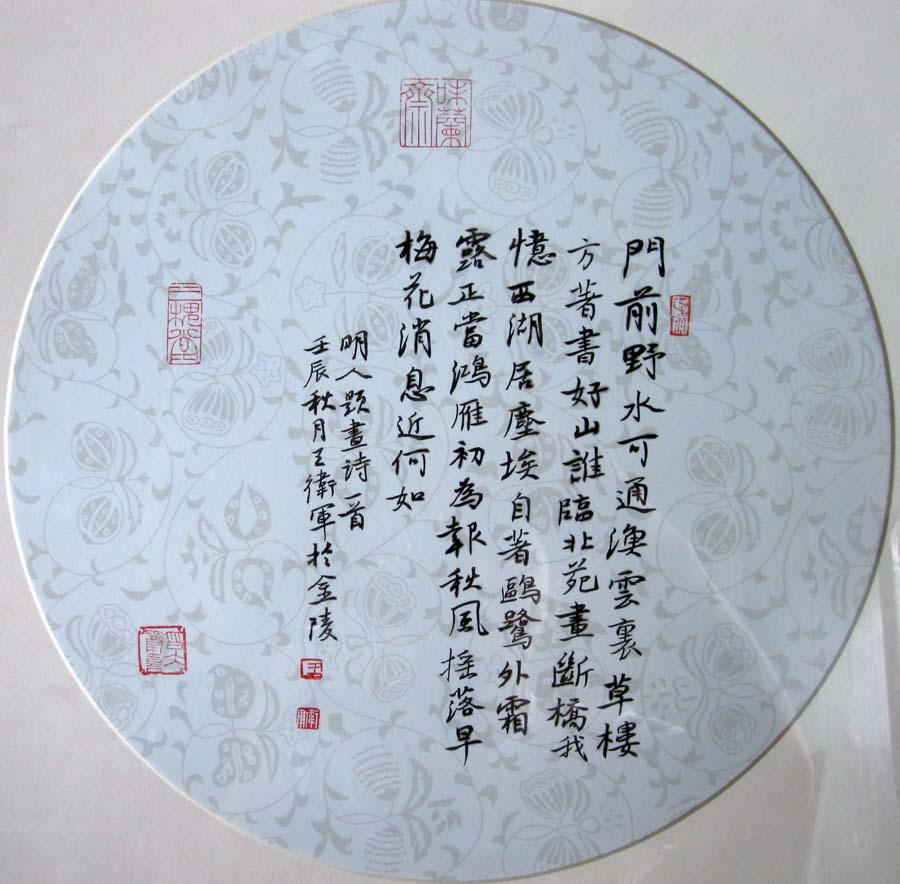 門前野水可通漁雲裏草樓
方著書好山誰臨北苑畫斷橋我
憶西湖居塵埃自著鷗鷺外霜
露正當鴻雁初為報秋風搖落早
梅花消息近何如
明人題畫詩一首
壬辰秋月王衛軍於金陵
味蘭齋
三槐堂
王
衛軍